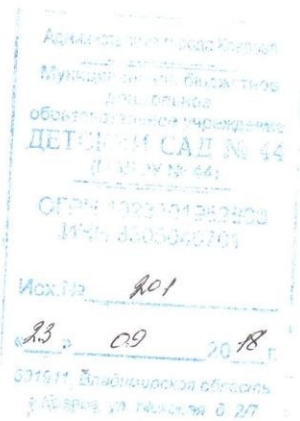 Администрация города Коврова
Муниципальное бюджетное
дошкольное
образовательное учреждение
ДЕТСКИЙ САД № 44
(МБДОУ № 44)
ОГРН
ИНН
Исх.№ 201
«23» 09 2018 г.
601911, Владимирская область
г. Ковров, ул. д. 2/7